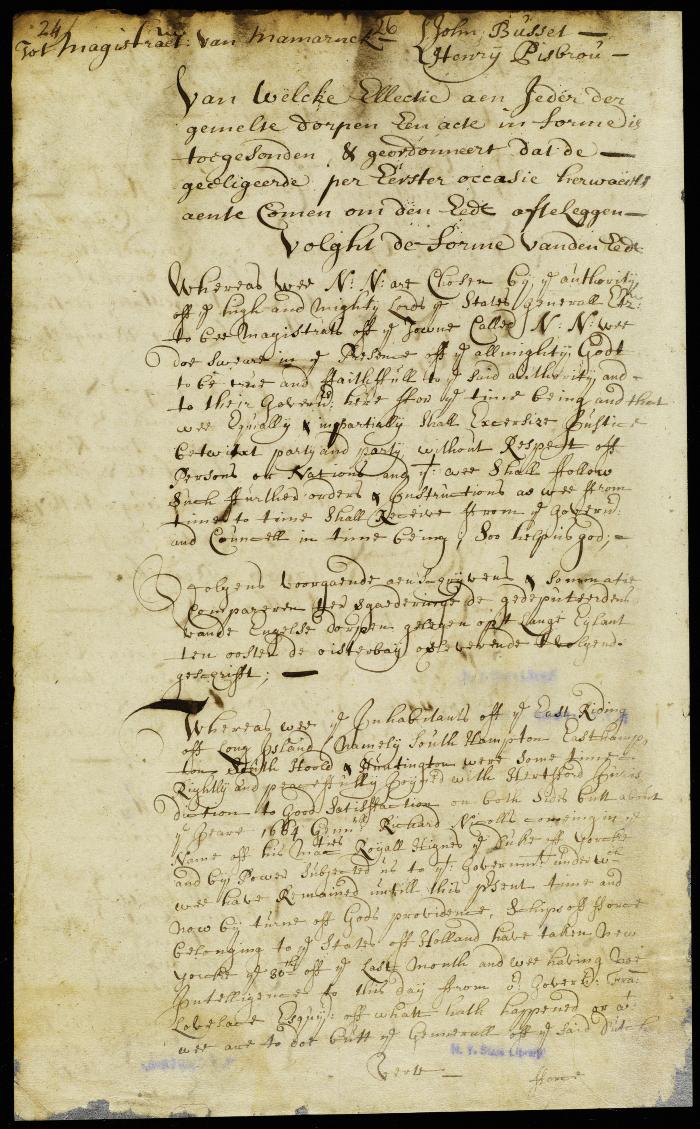 24
26
Tot Magistraet: van Mamarnck John Busset —
Henry Disbrou —
Van Welcke Electie aen Jeder der
gemelte dorpen Een acte in forme is
toegesonden, & geordonneert dat de —
geeligeerde per Eerster occasie herwaerts
aente Comen om den Eedt afteleggen —
Volght de forme vanden Eedt
Whereas wee N: N: are Chosen by ye authority
off ye high and mighty Lords ye States generall &c:
to bee Magistrats off ye Towne Called N: N: wee
doe Sweare in ye Presence off ye allmighty Godt
to be true and ffaithffull to ye said authority and
to their Govern: here ffor ye time being and that
wee Equally & impartially Shall Excersize Justice
betwixt party and party without Respect off
Persons or Nations and yt wee Shall ffollow
Such ffurther orders & Instructions as wee ffrom
time to time Shall Receive ffrom ye Govern:
and Councell in time being; Soo help us god; —
Volgens voorgaende aenschryvens & sommatie
Compareren ter vgaederinge de gedeputeerdens
vande Engelse dorpen gelegen op't Lange Eylant
ten oosten de oisterbay overleverende volgend.
geschrifft; —
Whereas wee ye Inhabitants off ye East Riding
off Long Island Namely South Hampton Easthamp,
ton South Hoold & Huntington were Some time
Rightly and peaceffully Joyned with Hertfford Juris
diction to Good Satisffaction on both Sides butt about
ye Yeare 1664 Genn:ll Richard Nicolls comeing in ye
Name off his Maties Royall Highnes ye Duke off Yorcke
and by Power Subjected us to yt Governmt under wch
wee have Remained untill this psent time and
Now by turne off Gods providence, Schips off fforce
belonging to ye States off Holland have taken New
yorcke ye 30th off ye Last Month and wee having Noe
Intelligence to this day ffrom or Govern: Fra:
Lovelace Esquyr: off whatt hath happened or wt
wee are to doe butt ye Gennerall off ye said Dutch
fforce
N. Y. State Library